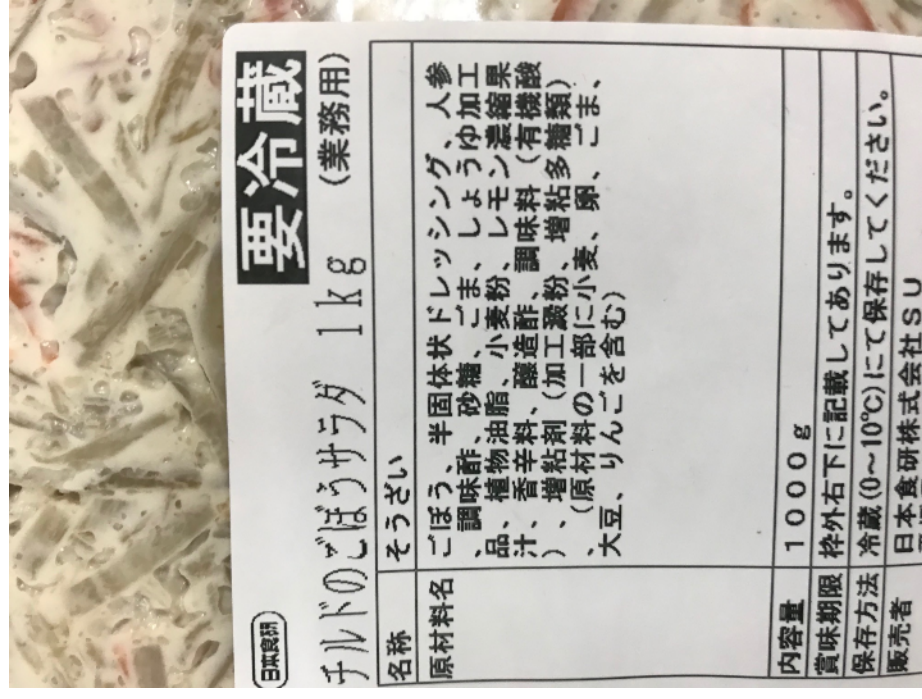 日本食研
要冷蔵
チルドのごぼうサラダ 1kg (業務用)
名称 そうざい
原材料名 ごぼう、半固体状ドレッシング、人参
、調味酢、砂糖、ごま、しょうゆ加工
品、植物油脂、小麦粉、レモン濃縮果
汁、香辛料、醸造酢、調味料(有機酸
)、増粘剤(加工澱粉、増粘多糖類)
、(原材料の一部に小麦、卵、ごま、
大豆、りんごを含む)
内容量 1000g
賞味期限 枠外右下に記載してあります。
保存方法 冷蔵(0~10℃)にて保存してください。
販売者 日本食研株式会社SU